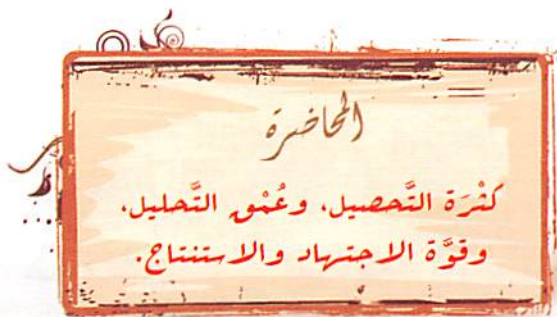 المحاضرة
كَثْرَة التَّحصيل، وعُمْق التَّحليل،
وقوَّة الاجتهاد والاستنتاج.